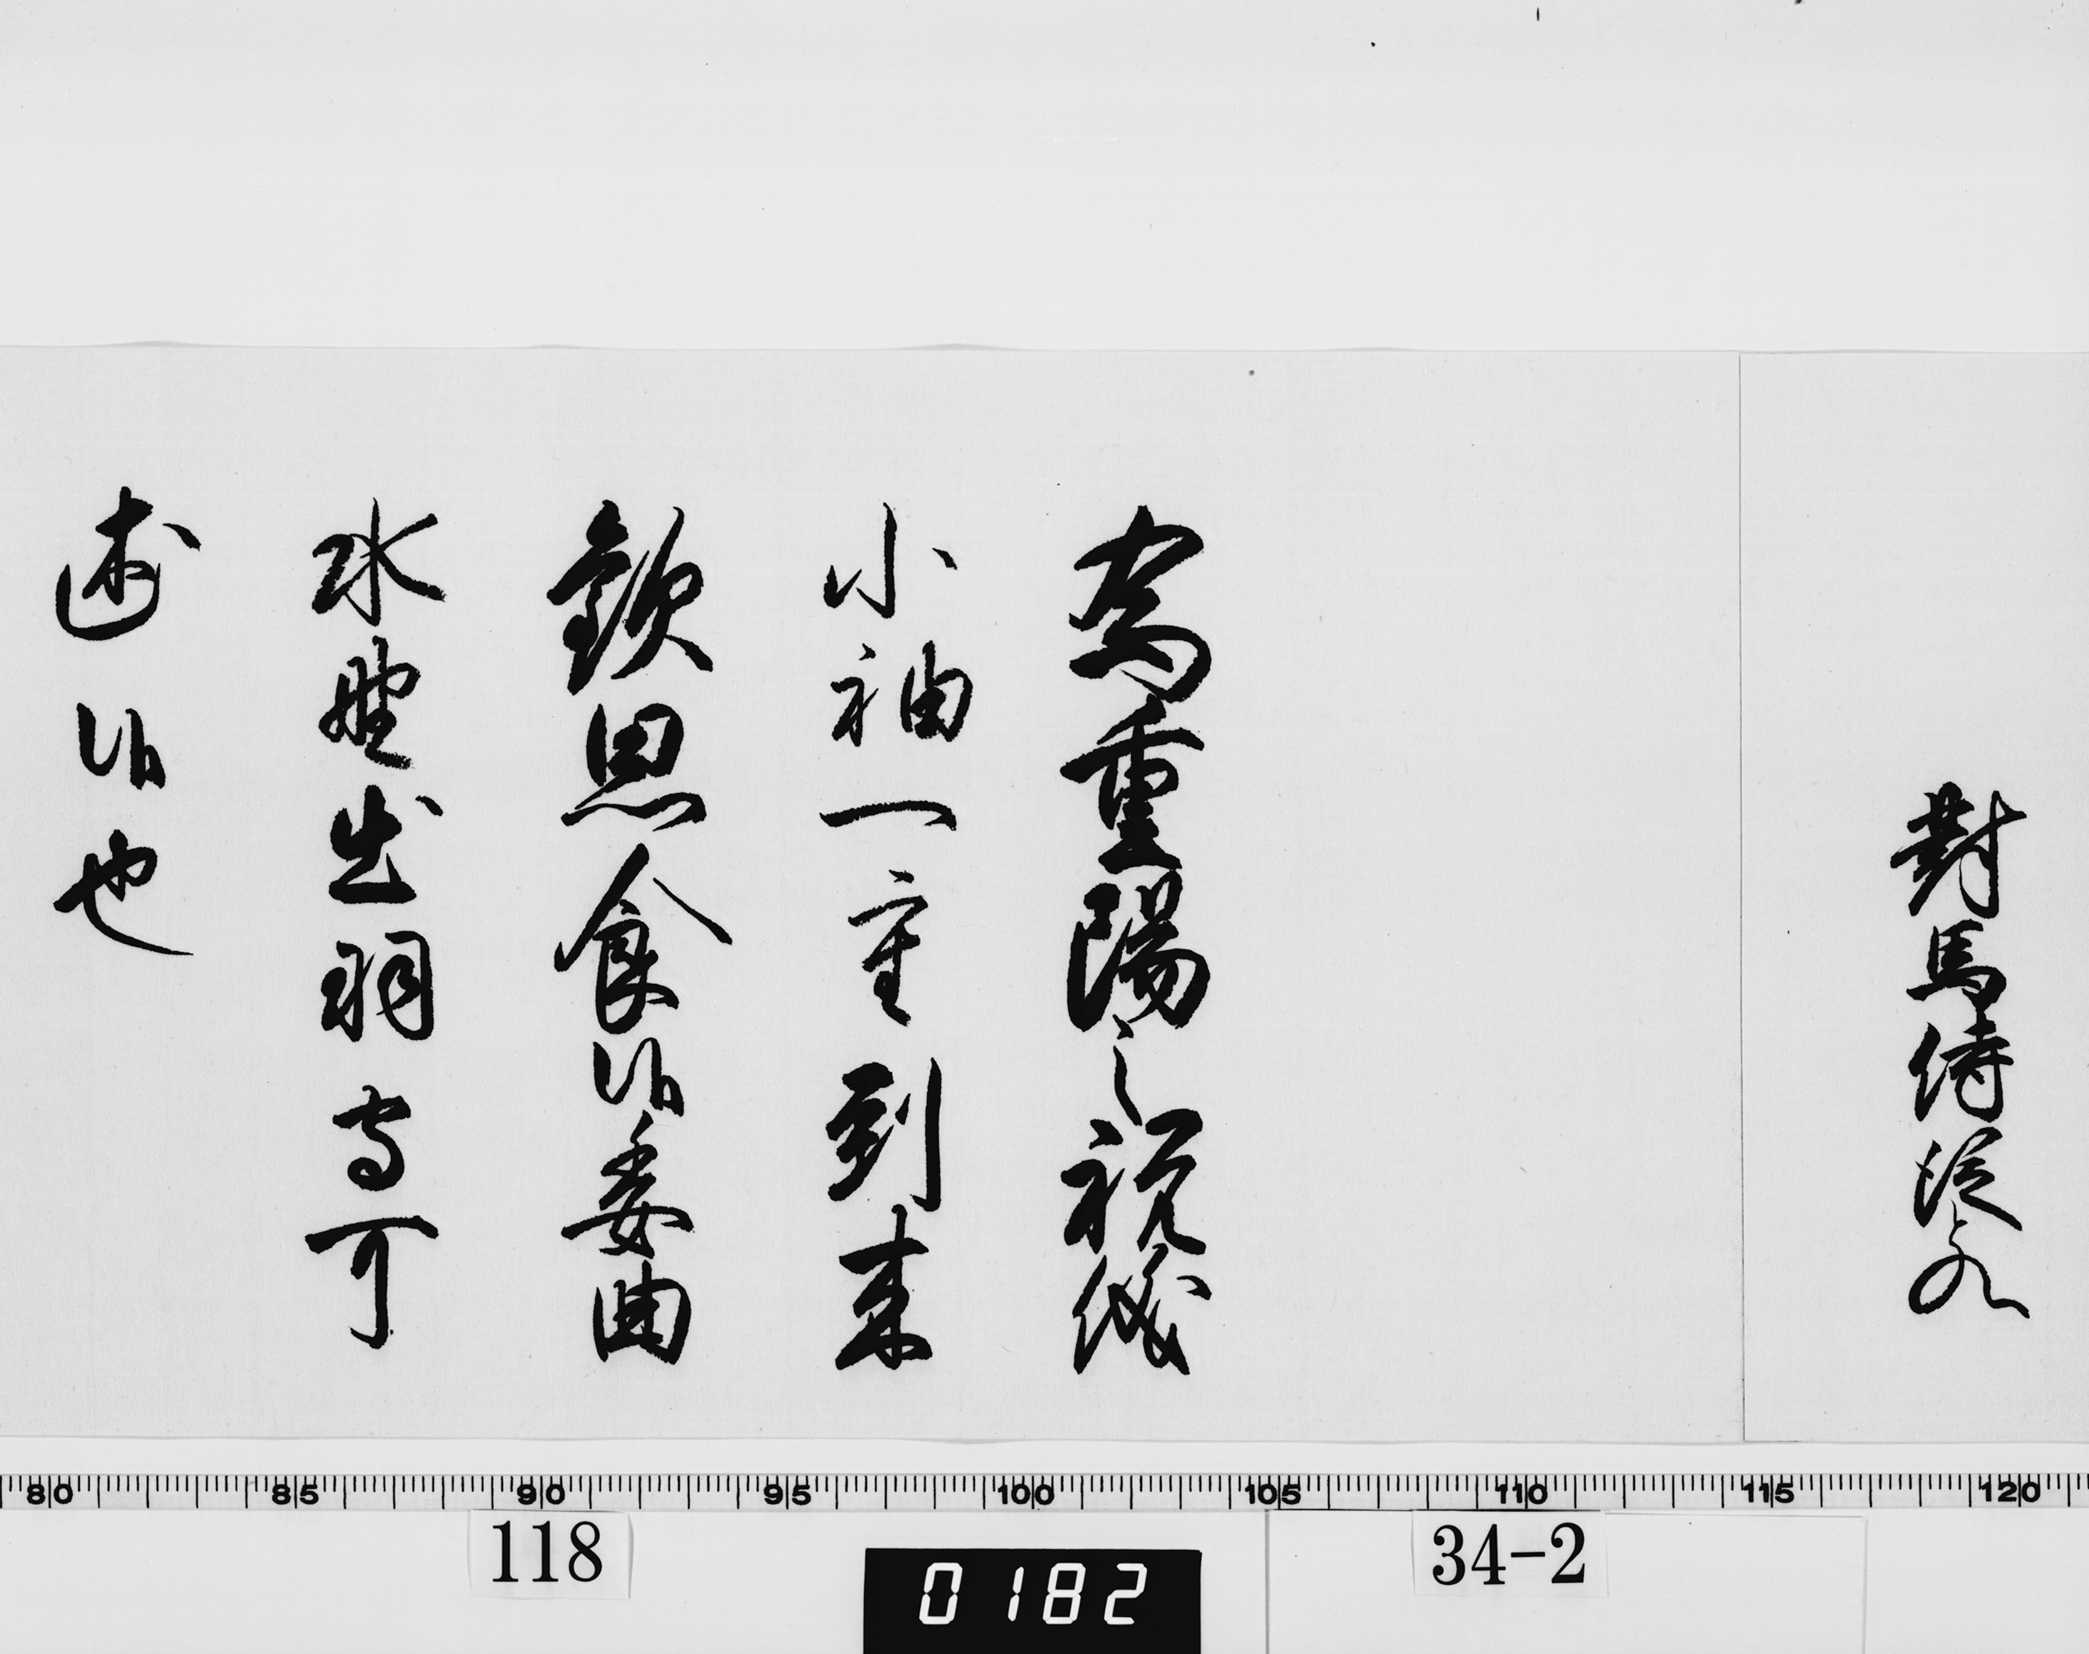 對馬侍從との
為重陽之祝儀
小袖一重到来
歓思食候委曲
水野出羽守可
述候也
80 85 90 95 100 105 110 115 120
118
34-2
0182